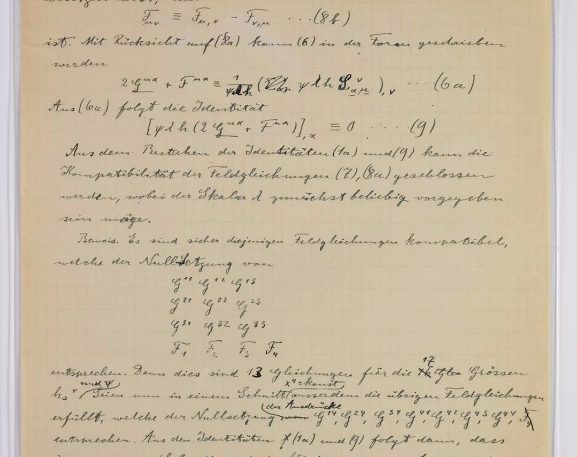 F_{μν} ≡ F_{μ,ν} - F_{ν,μ} ... (8b)
ist. Mit Rücksicht auf (8a) kann (6) in der Form geschrieben
werden
2 G^{μα} + F^{μα} ≡ 1/ψh ( ψ h ),ν ... (6a)
Aus (6a) folgt die Identität
[ψ h (2 G^{μα} + F^{μα})],α ≡ 0 ... (9)
Aus dem Bestehen der Identitäten (1a) und (9) kann die
Kompatibilität der Feldgleichungen (7), (8a) geschlossen
werden, wobei der Skalar zunächst beliebig vorgegeben
sein möge.
Beweis. Es sind sicher diejenigen Feldgleichungen kompatibel,
welche der Nullsetzung von
G^{11} G^{12} G^{13}
G^{21} G^{22} G^{23}
G^{31} G^{32} G^{33}
F_1 F_2 F_3 F_4
entsprechen. Denn dies sind 13 Gleichungen für die 17 Grössen
h_s^ν und ψ. Seien nun in einem Schnitt x^4 = konst ausserdem die übrigen Feldgleichungen
erfüllt, welche der Nullsetzung der Ausdrücke G^{14}, G^{24}, G^{34}, G^{41}, G^{42}, G^{43}, G^{44},
entsprechen. Aus den Identitäten (1a) und (9) folgt dann, dass